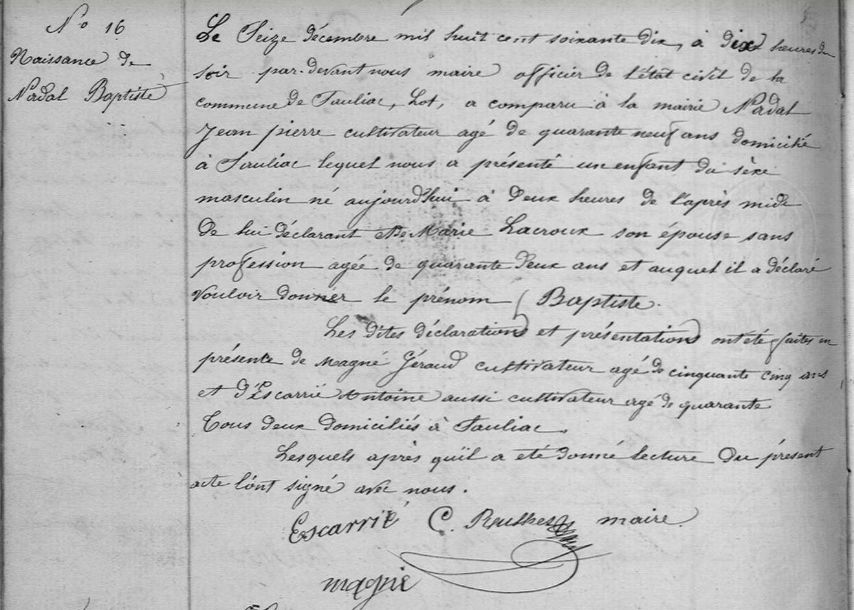 No 16
Naissance de
Nadal Baptiste
Le Seize décembre mil huit cent soixante dix, à dix heures du
soir par-devant nous maire officier de l'état civil de la
commune de Sauliac, Lot, a comparu à la mairie Nadal
Jean pierre cultivateur agé de quarante neuf ans domicilié
à Sauliac lequel nous a présenté un enfant du sèxe
masculin né aujourd'hui à deux heures de l'après midi
de lui déclarant et de Marie Lacroux son épouse sans
profession agée de quarante deux ans et auquel il a déclaré
vouloir donner le prénom Baptiste.
Les dites déclarations et présentations ont été faites en
présente de Magné Géraud cultivateur agé de cinquante cinq ans
et d'Escarrié Antoine aussi cultivateur agé de quarante
Tous deux domiciliés à Sauliac.
Lesquels après qu'il a été donné lecture du présent
acte l'ont signé avec nous.
Escarrié C. maire
magné